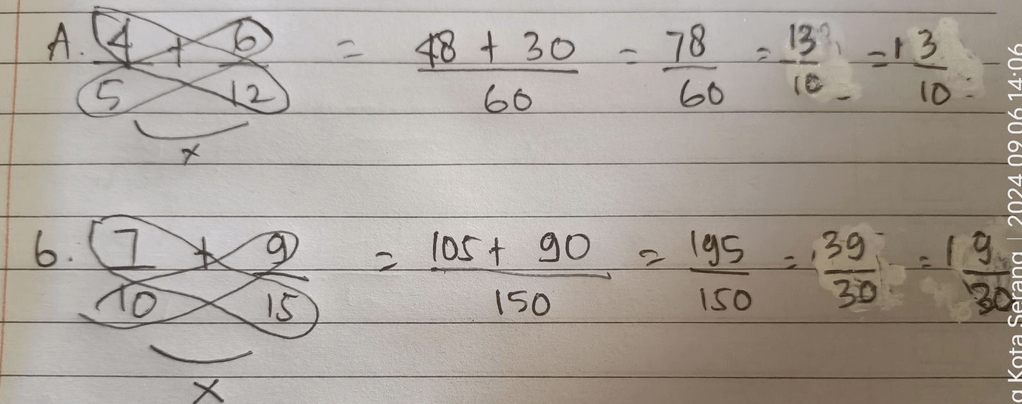 A. 4/5 + 6/12 = 48 + 30/60 = 78/60 = 13/10 = 1 3/10
x
b. 7/10 + 9/15 = 105 + 90/150 = 195/150 = 39/30 = 1 9/30
x
g Kota Serang | 2024.09.06 14:06